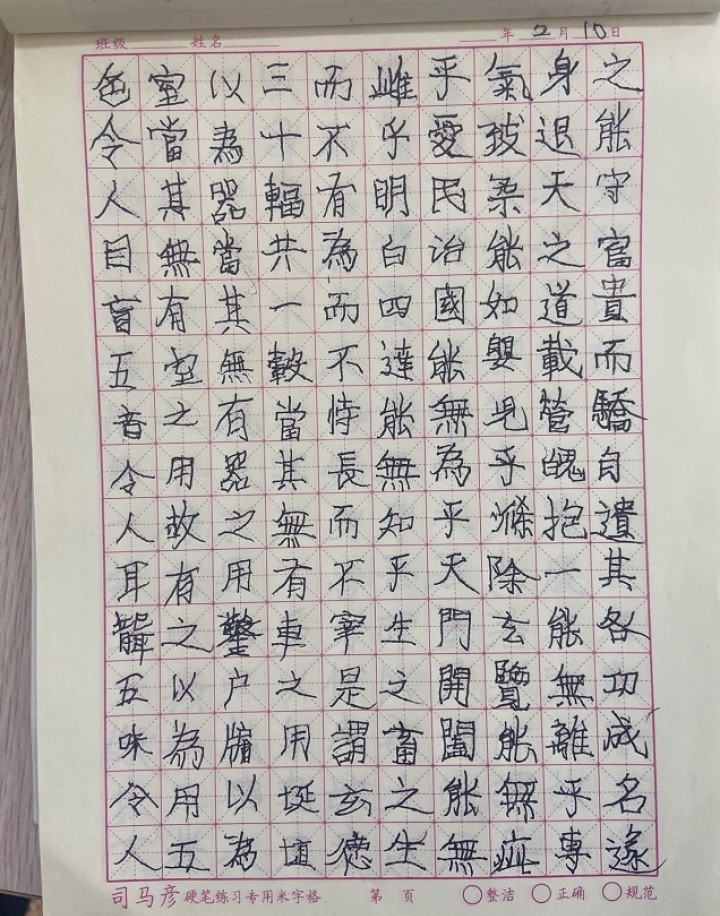 班级 姓名 年 2 月 10 日
之能守富貴而驕自遺其各功成名遂
身退天之道載營魄抱一能無離乎專
氣致柔能如嬰兒乎滌除玄覽能無疵
乎愛民治國能無為乎天門開闔能無
雌乎明白四達能無知乎生之畜之生
而不有為而不恃長而不宰是謂玄德
三十輻共一轂當其無有車之用埏埴
以為器當其無有器之用鑿户牖以為
室當其無有室之用故有之以為用五
色令人目盲五音令人耳聾五味令人
司马彦 硬笔练习专用米字格 第 页 整洁 正确 规范